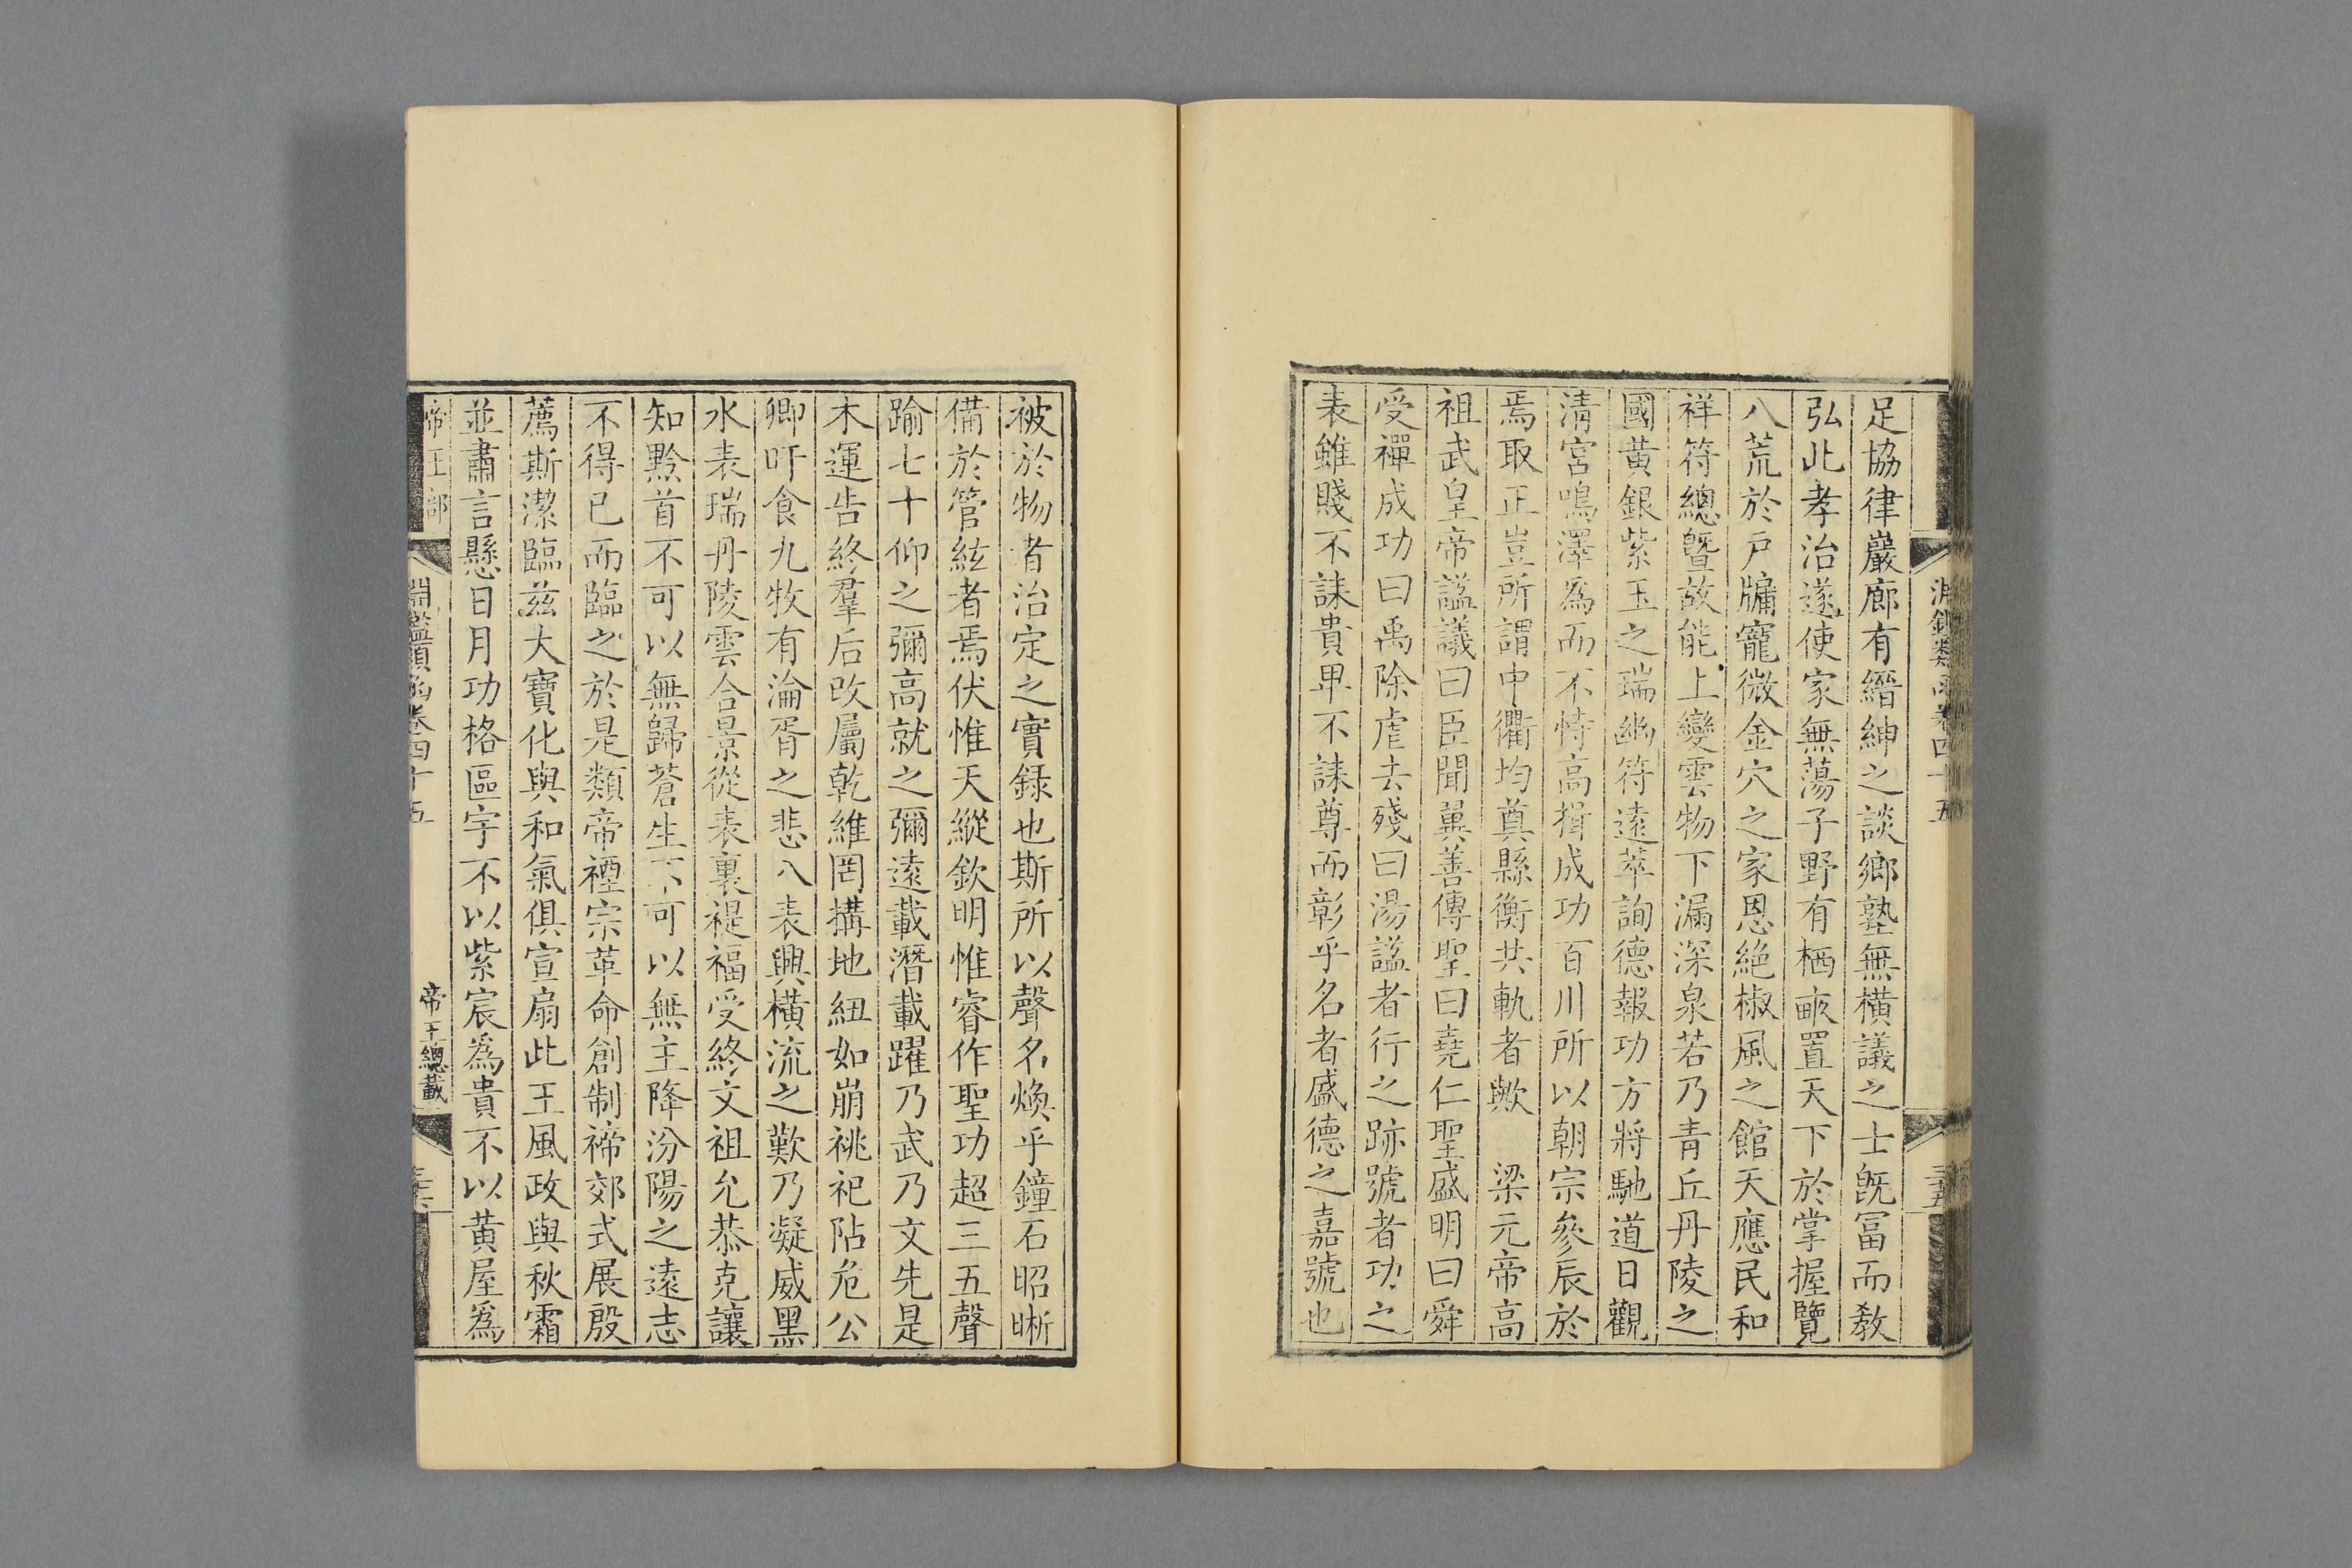 淵鑑類函卷四十五
三十五
足協律巖廊有縉紳之談鄉塾無橫議之士旣富而敎
弘此孝治遂使家無蕩子野有栖畝置天下於掌握覽
八荒於戸牖寵微金穴之家恩絕椒風之館天應民和
祥符總曁故能上變雲物下漏深泉若乃青丘丹陵之
國黄銀紫玉之瑞幽符遠萃詢德報功方將馳道日觀
清宮鳴澤爲而不恃高揖成功百川所以朝宗參辰於
焉取正豈所謂中衢均奠縣衡共軌者歟　梁元帝高
祖武皇帝諡議曰臣聞翼善傳聖曰堯仁聖盛明曰舜
受禪成功曰禹除虐去殘曰湯諡者行之跡號者功之
表雖賤不誄貴卑不誄尊而彰乎名者盛德之嘉號也
被於物者治定之實録也斯所以聲名煥乎鐘石昭晰
備於管絃者焉伏惟天縱欽明惟睿作聖功超三五聲
踰七十仰之彌高就之彌遠載潛載躍乃武乃文先是
木運告終羣后改屬乾維罔搆地紐如崩祧祀阽危公
卿吁食九牧有淪胥之悲八表興橫流之歎乃凝威黑
水表瑞丹陵雲合景從表裏禔福受終文祖允恭克讓
知黔首不可以無歸蒼生不可以無主降汾陽之遠志
不得已而臨之於是類帝禋宗革命創制禘郊式展殷
薦斯潔臨兹大寶化與和氣俱宣扇此王風政與秋霜
並肅言懸日月功格區宇不以紫宸爲貴不以黄屋爲
帝王部
淵鑑類函卷四十五
帝王總載
三十六